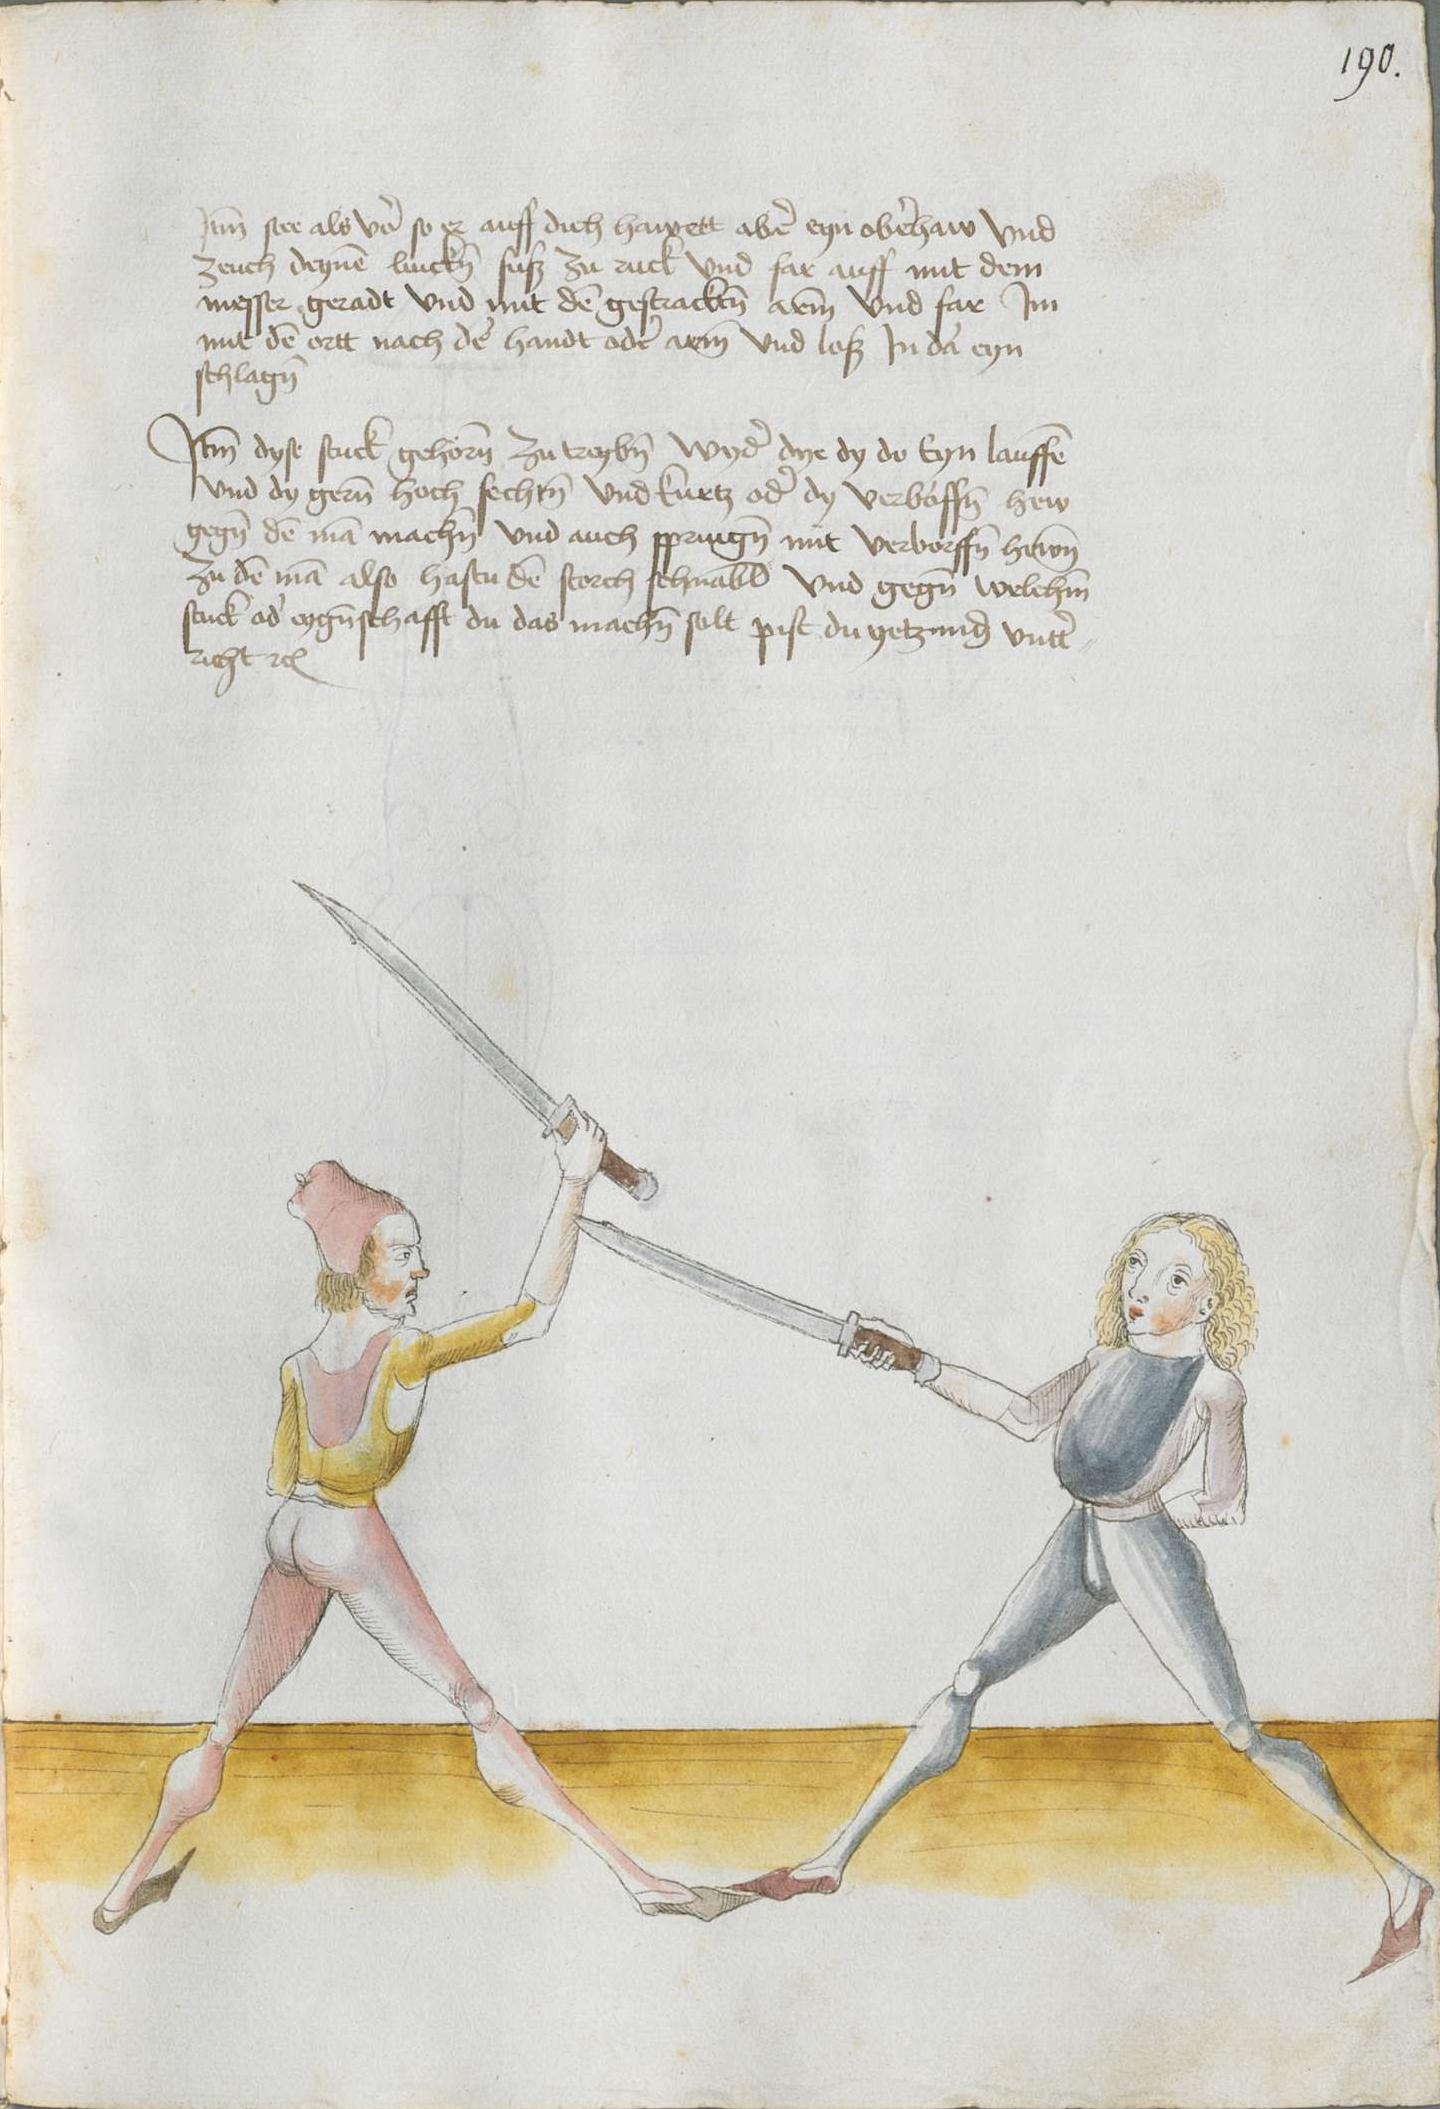 190.
Itm̄ stee als vor̄ so er auff dich hawett aber̄ eyn ober̄haw vnd
zeuch deynē linckn̄ fusz zu ruck vnd far auff mit dem
messer geradt vnd mit dē gestracktn̄ arm̄ vnd far Im
mit dē ortt nach der̄ handt oder̄ arm̄ vnd losz In dar̄ eyn
schlagn̄
Itm̄ dyse stuck gehorn̄ zu treybn̄ wyder̄ dye dy do Eyn lauffē
vnd dy gern̄ hoch fechtn̄ vnd kurtz oder̄ dy verborffn̄ hew
gegn̄ dē mā machn̄ vnd auch springn̄ mit verborffn̄ hewn̄
zu dē mā also hastu dē storch schnabl vnd gegn̄ welchm̄
stuck oder̄ eygn̄schafft du das machn̄ solt pist du yetzund vntter̄
richt rc